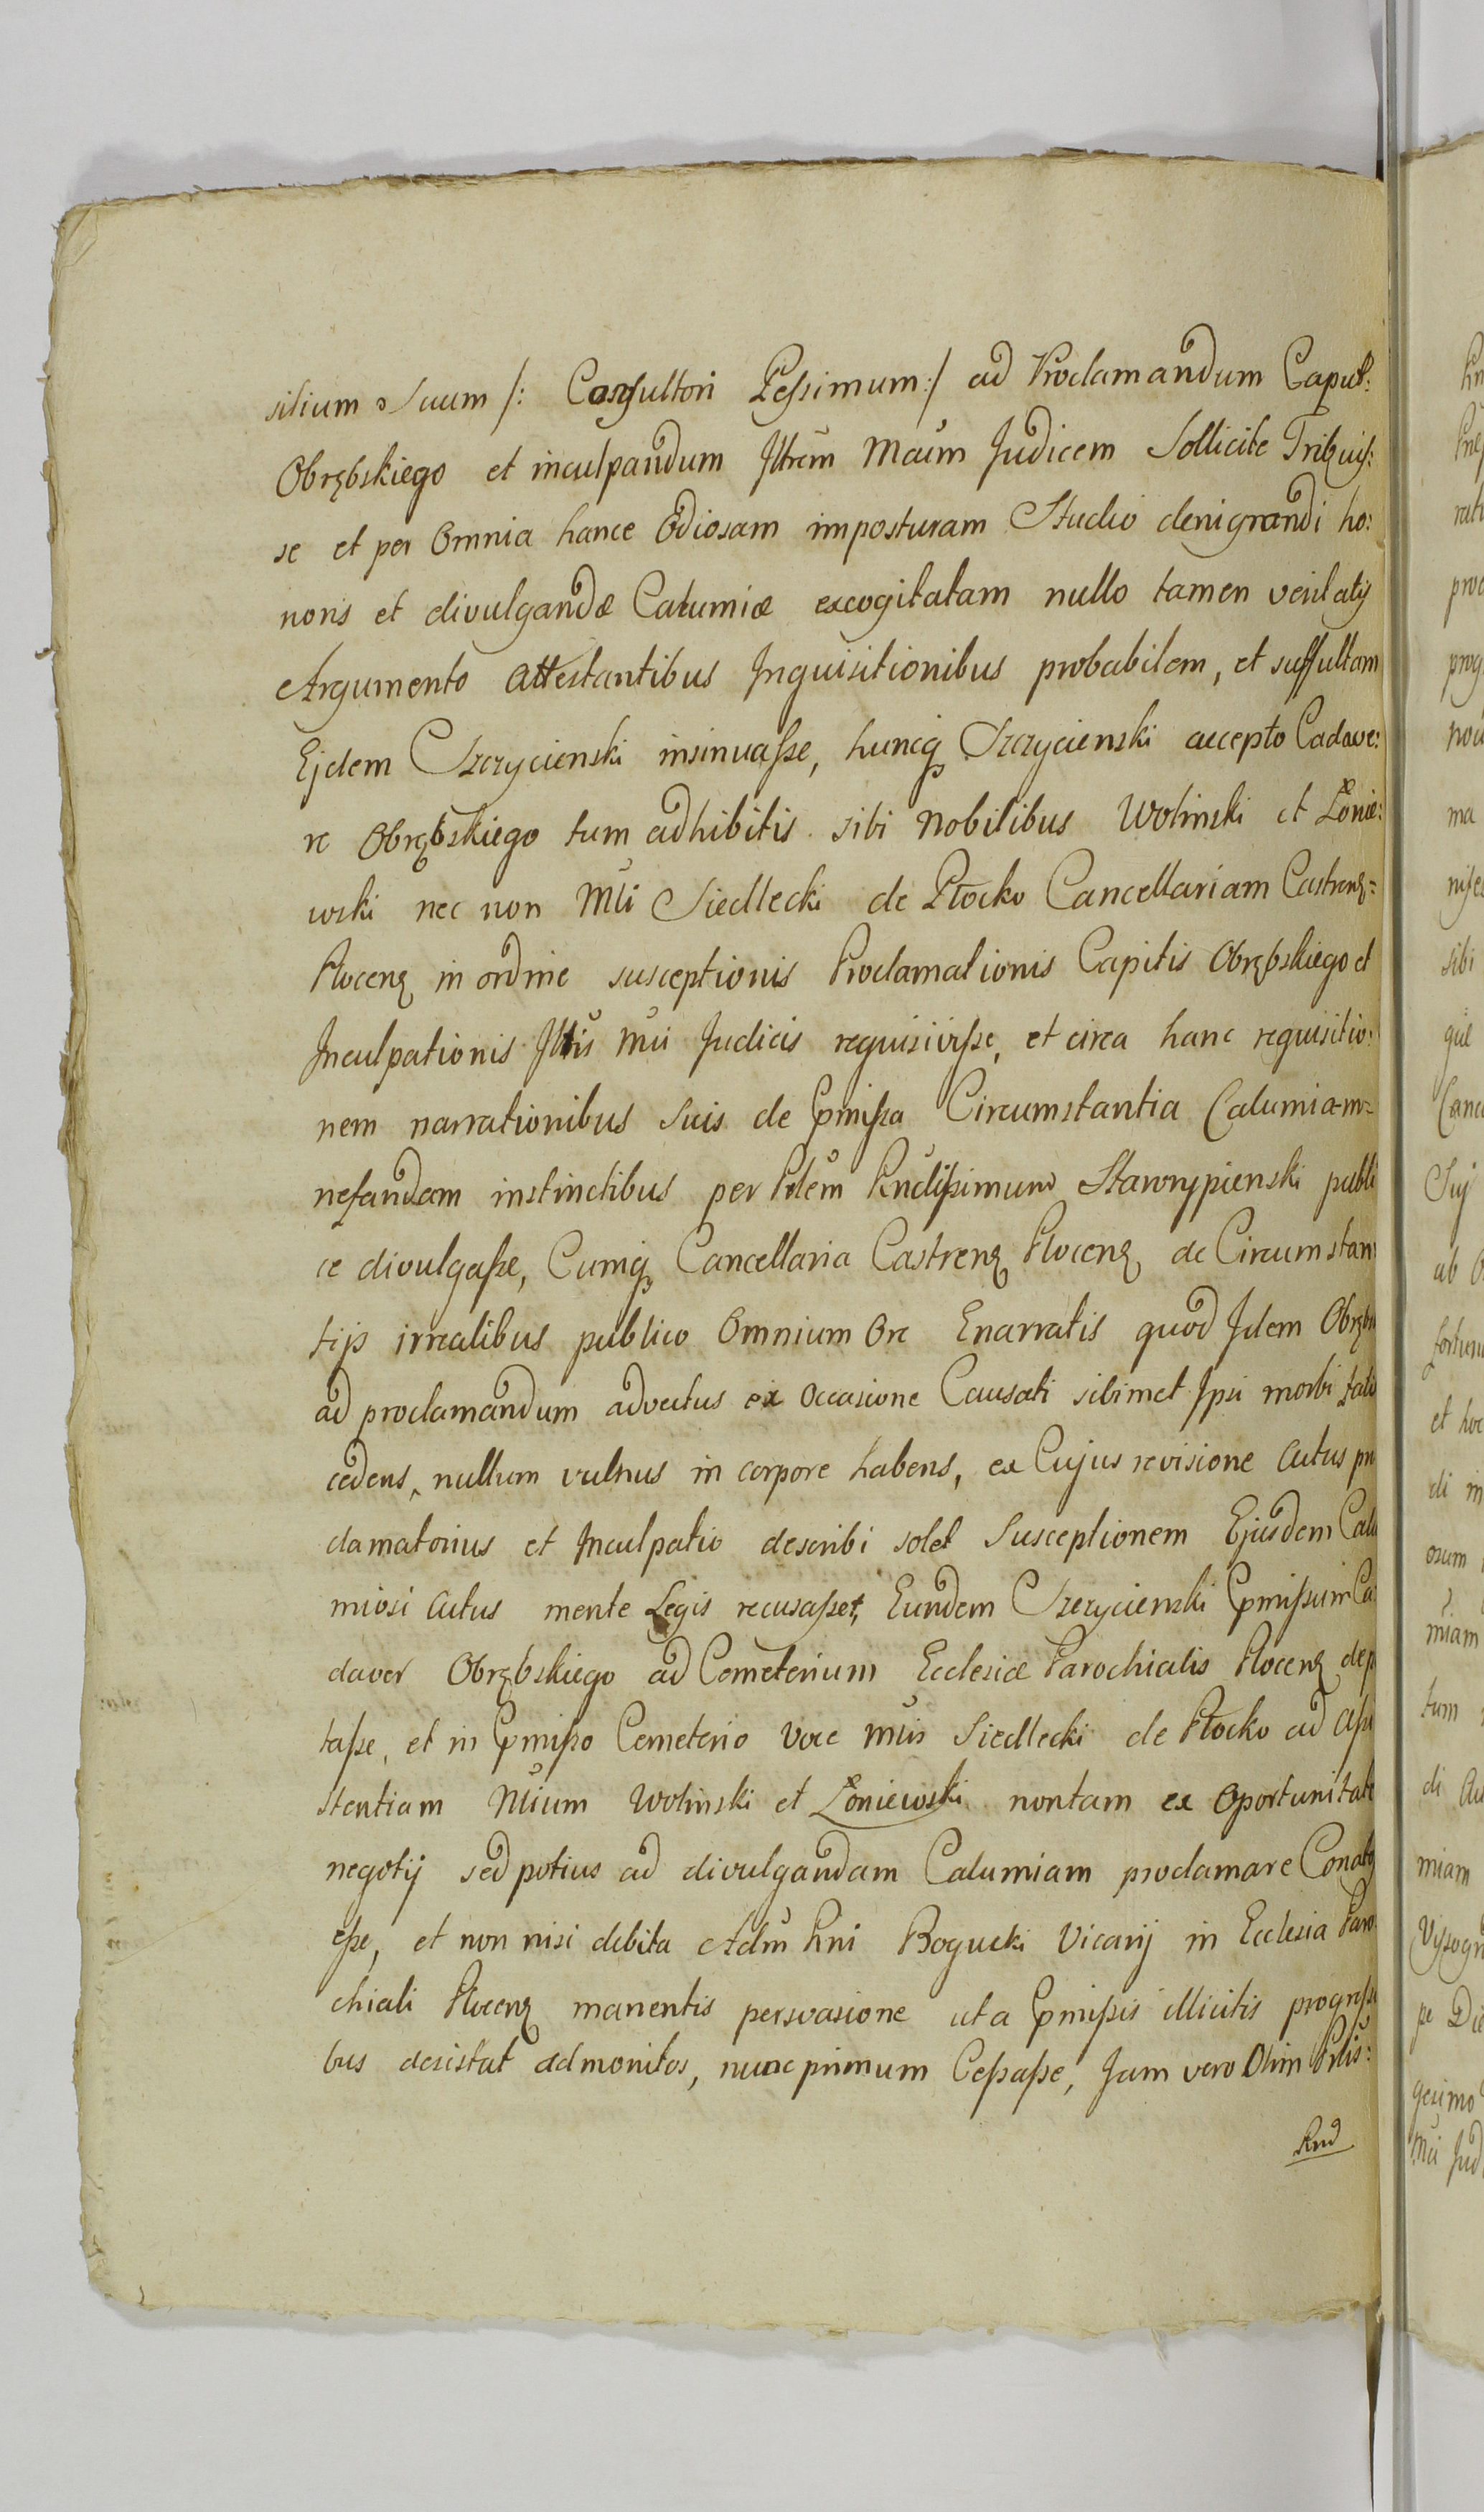 silium Suum /: Consultori Pessimum :/ ad Proclamandum Caput:
Obrębskiego et inculpandum Illrem Mcum Judicem Sollicite Tribuis:
se et per Omnia hance Odiosam imposturam Studio denigrandi ho:
noris et divulgandæ Calumiæ excogitatam nullo tamen veritatis
Argumento attestantibus Inquisitionibus probabilem, et suffultam
Ejdem Szczycienski insinuasse, huncq Szczycienski accepto Cadave:
re Obrębskiego tum adhibitis sibi Nobilibus Wolinski et Łonie:
wski nec non Mci Siedlecki de Płocko Cancellariam Castrens=
Plocens in ordine susceptionis Proclamationis Capitis Obrębskiego et
Inculpationis Illris Mci Judicis requisivisse, et circa hanc requisitio:
nem narrationibus Suis de Pmissa Circumstantia Calumiam=
nefandam instinctibus per Prlem Rndissimum Starorypienski publi
ce divulgasse, Cumq Cancellaria Castrens Plocens de Circumstan
tijs irrealibus publico Omnium Ore Enarratis quod Idem Obręb
ad proclamandum advectus ex Occasione Causati sibimet Ipsi morbi
cedens, nullum vulnus in corpore habens, ex Cujus revisione Actus pro
clamatorius et Inculpatio describi solet Susceptionem Ejusdem Calu
miosi Actus mente Legis recusasset, Eundem Szczycienski Pmissum Ca
daver Obrębskiego ad Cemeterium Ecclesiæ Parochialis Plocens dep
tasse, et in Pmisso Cemeterio voce Mcis Siedlecki de Płocko ad Assi
stentiam Mcium Wolinski et Łoniewski nontam ex Oportunitate
negotij sed potius ad divulgandam Calumiam proclamare Conatq
esse, et non nisi debita Adm Rni Bogucki Vicarij in Ecclesia Paro
chiali Plocens manentis persvasione ut a Pmissis illicitis progressi
bus desistat admonitos, nunc primum Cessasse, Jam vero Olim Prlis:
Rnd